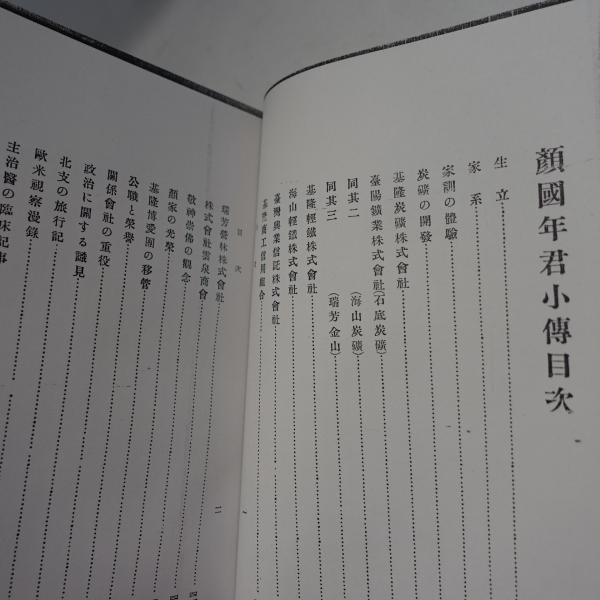 顏國年君小傳目次
生立
家系
家訓の體驗
炭礦の開發
基隆炭礦株式會社
臺陽鑛業株式會社(石底炭礦)
同其二(海山炭礦)
同其三(瑞芳金山)
基隆輕鐵株式會社
海山輕鐵株式會社
臺灣興業信託株式會社
商工信用組合
一
目次
二
瑞芳營林株式會社
株式會社雲泉商會
敬神崇佛の觀念
顏家の光榮
基隆博愛團の移管
公職と榮譽
關係會社の重役
政治に關する識見
北支の旅行記
歐米視察漫錄
主治醫の臨床記事